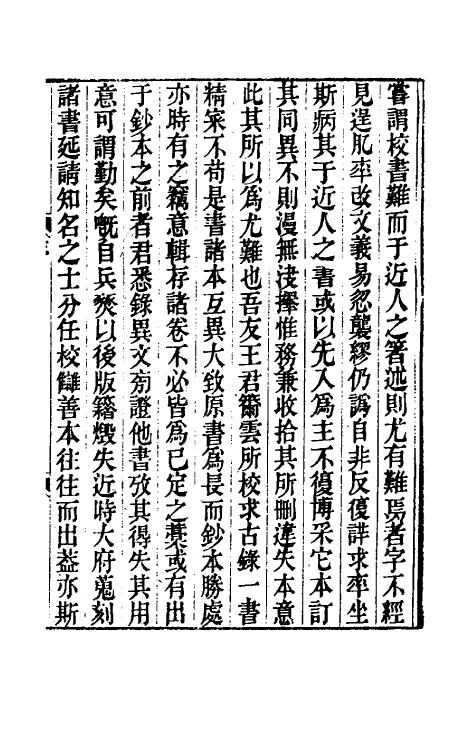 嘗謂校書難而于近人之箸述則尤有難焉者字不經
見逞肊率改文義易忽襲繆仍譌自非反復詳求率坐
斯病其于近人之書或以先入爲主不復博采它本訂
其同異不則漫無決擇惟務兼收拾其所刪違失本意
此其所以爲尤難也吾友王君爾雲所校求古錄一書
精宷不苟是書諸本互異大致原書爲長而鈔本勝處
亦時有之竊意輯存諸卷不必皆爲已定之藁或有出
于鈔本之前者君悉錄異文菊證他書攷其得失其用
意可謂勤矣嘅自兵燹以後版籍燬失近時大府蒐刻
諸書延請知名之士分任校讎善本往往而出葢亦斯